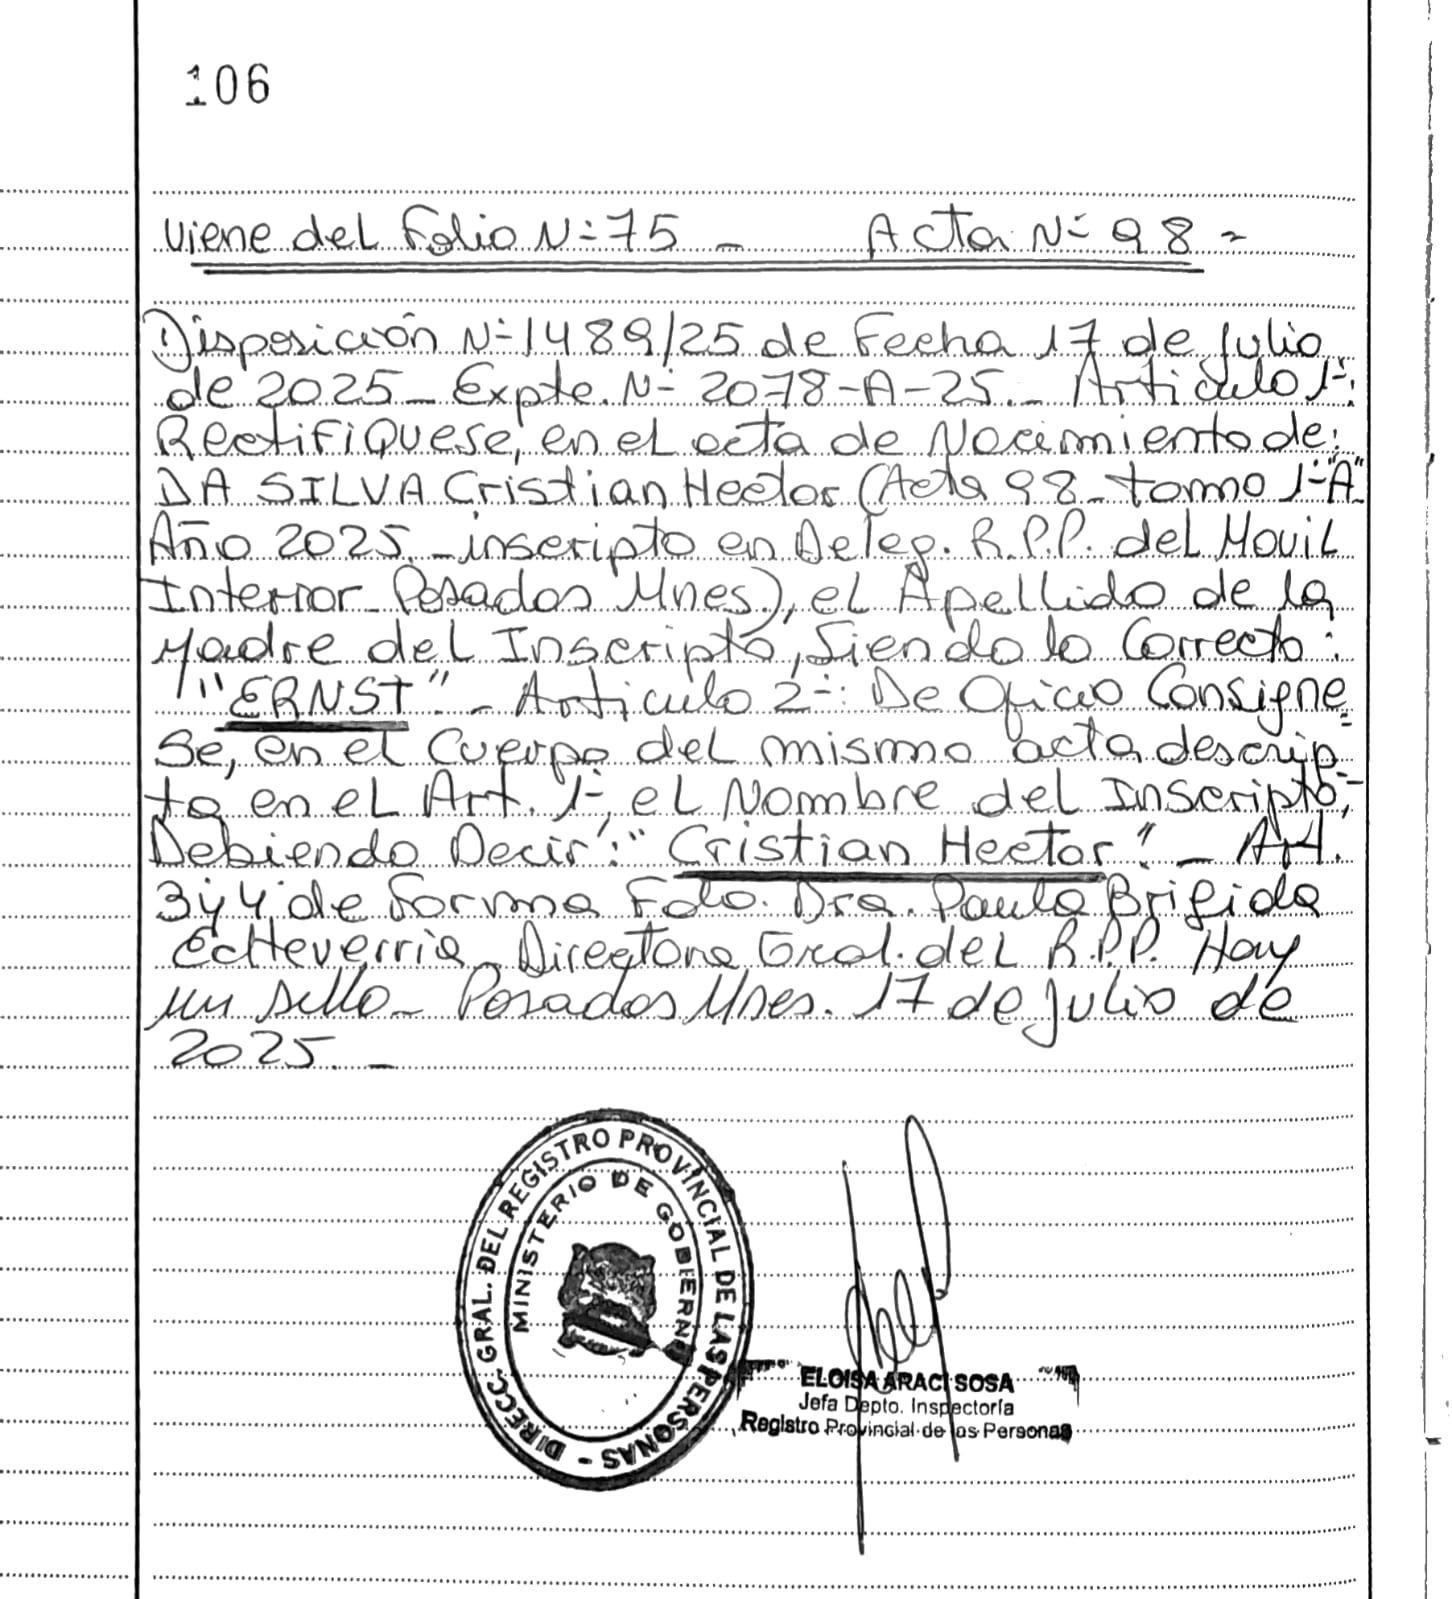 106
Viene del Folio Nº 75 - Acta Nº 98 -
Disposición Nº 1489/25 de Fecha 17 de Julio
de 2025 - Expte. Nº 2078-A-25.- Articulo 1º:
Rectifiquese, en el acta de Nacimiento de:
DA SILVA Cristian Hector (Acta 98 - tomo 1º "A"
Año 2025 - inscripto en Deleg. R.P.P. del Movil
Interior Posadas Mnes), el Apellido de la
Madre del Inscripto, Siendo lo Correcto:
"ERNST". - Articulo 2º: De Oficio Consigne-
se, en el Cuerpo del mismo acta descrip-
ta en el Art. 1º, el Nombre del Inscripto,
Debiendo Decir: "Cristian Hector". - Art.
3 y 4 de forma Fdo. Dra. Paula Brigida
Echeverria - Directora Gral. del R.P.P. Hay
un sello - Posadas Mnes. 17 de Julio de
2025. -
DIRECC. GRAL. DEL REGISTRO PROVINCIAL DE LAS PERSONAS -
MINISTERIO DE GOBIERNO
ELOISA ARACI SOSA
Jefa Depto. Inspectoría
Registro Provincial de las Personas